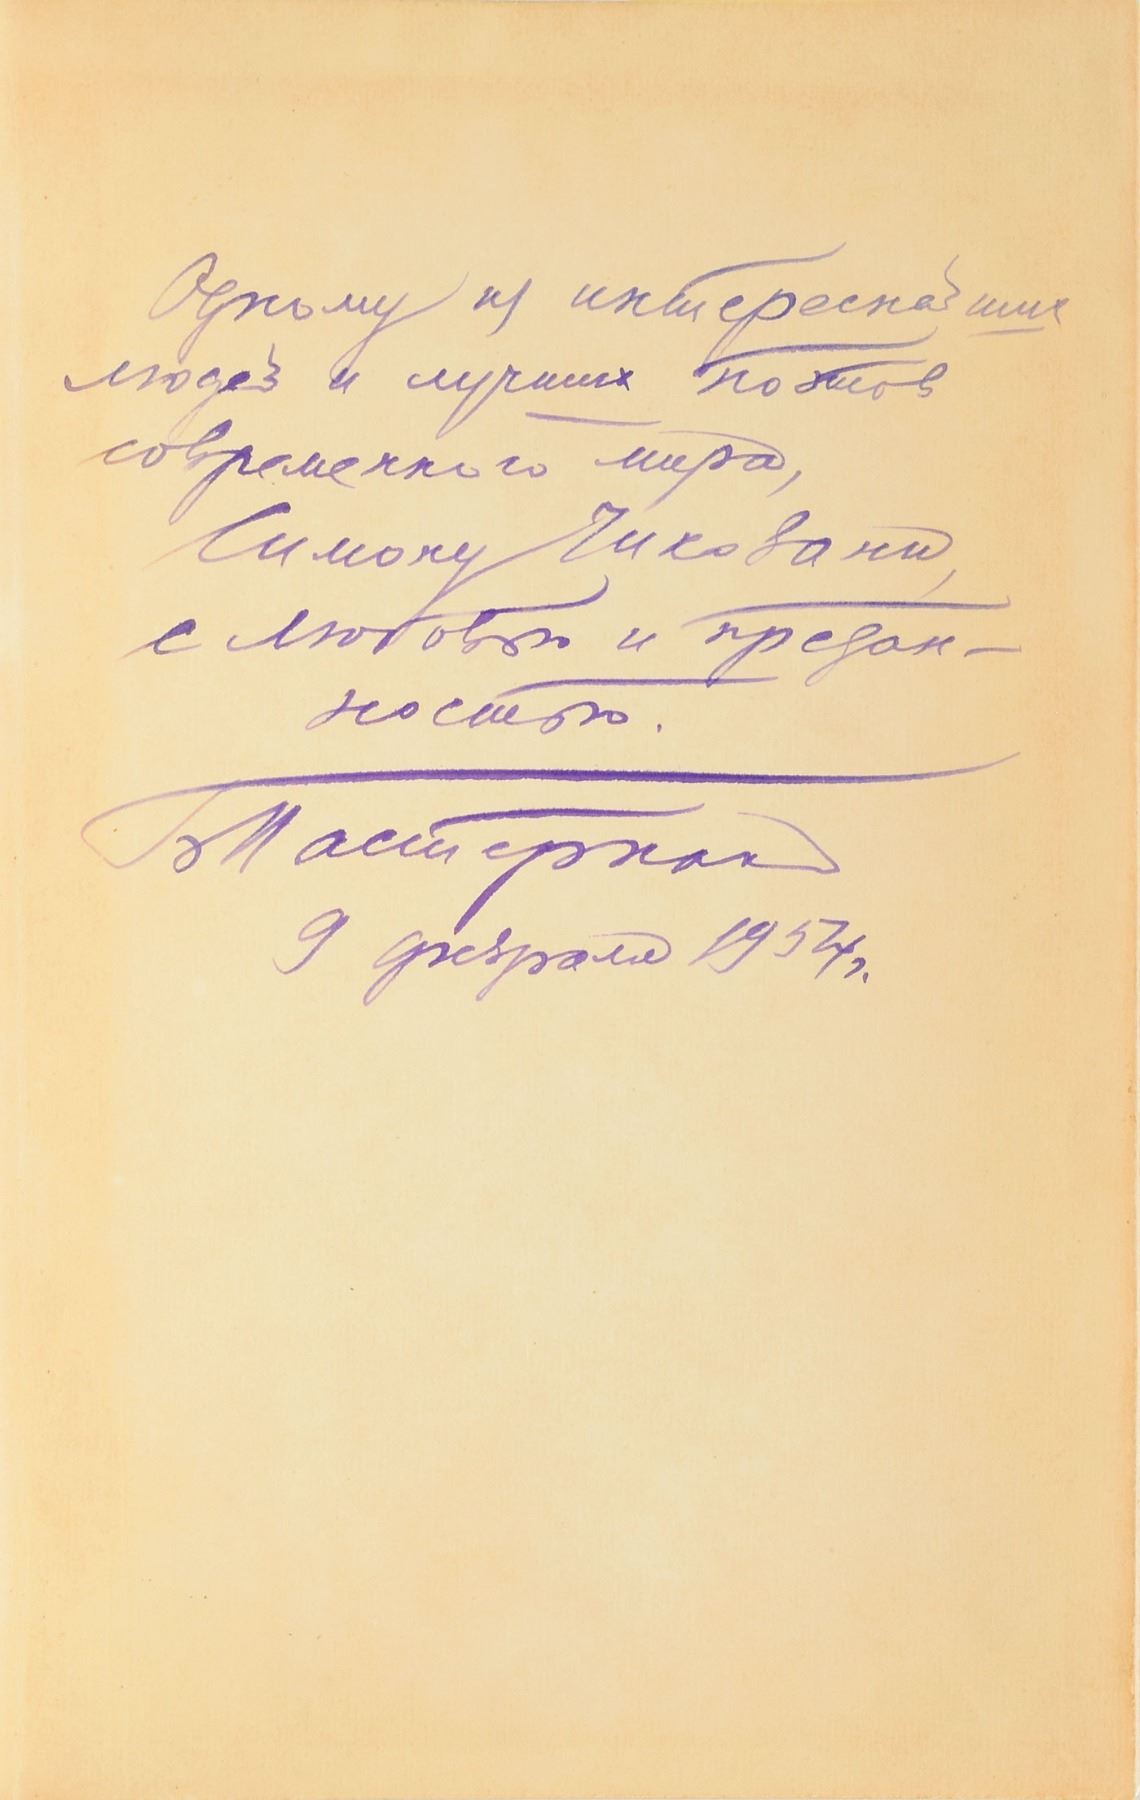 Одному из интереснейших
людей и лучших поэтов
современного мира,
Симону Чиковани,
с любовью и предан-
ностью.
Б Пастернак
9 февраля 1954 г.